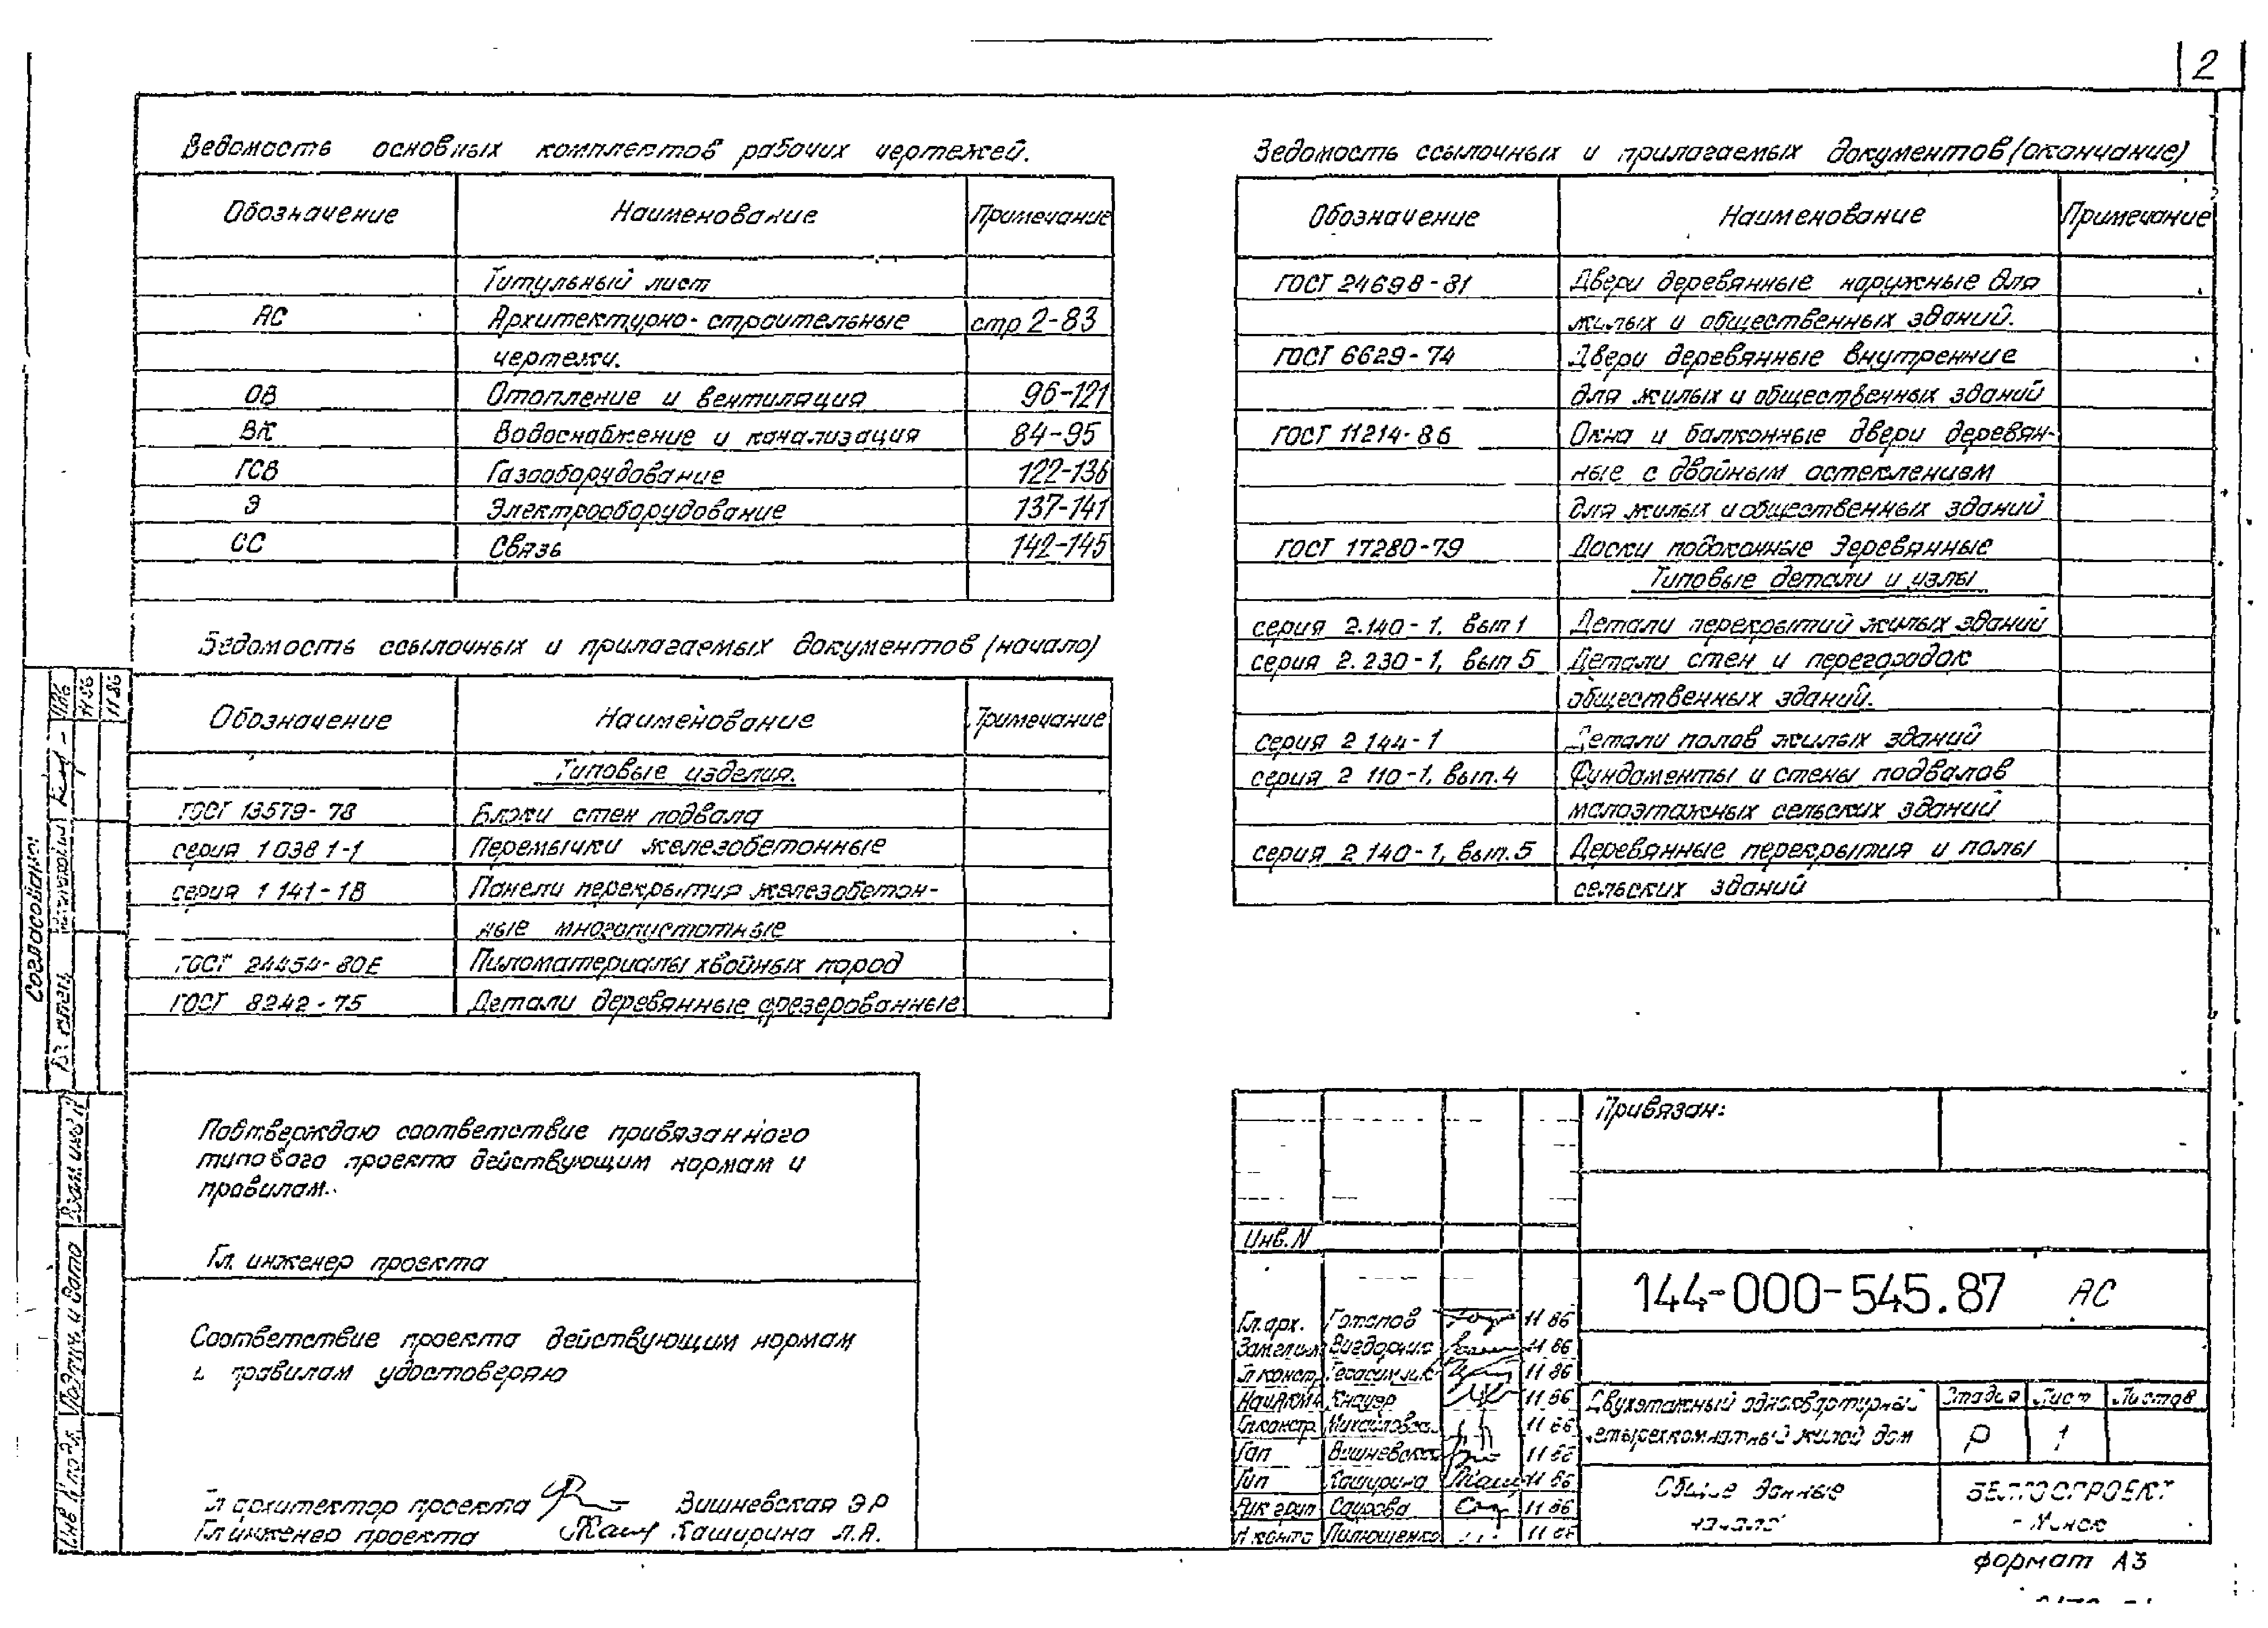 2
Ведомость основных комплектов рабочих чертежей.
Обозначение Наименование Примечание
Титульный лист
АС Архитектурно-строительные стр 2-83
чертежи.
ОВ Отопление и вентиляция 96-121
ВК Водоснабжение и канализация 84-95
ГСВ Газооборудование 122-136
Э Электрооборудование 137-141
СС Связь 142-145
Ведомость ссылочных и прилагаемых документов (начало)
Обозначение Наименование Примечание
Типовые изделия.
ГОСТ 13579-78 Блоки стен подвала
серия 1 038 1-1 Перемычки железобетонные
серия 1 141-1В Панели перекрытия железобетон-
ные многопустотные
ГОСТ 24454-80Е Пиломатериалы хвойных пород
ГОСТ 8242-75 Детали деревянные фрезерованные
Подтверждаю соответствие привязанного
типового проекта действующим нормам и
правилам.
Гл. инженер проекта
Соответствие проекта действующим нормам
и правилам удостоверяю
Гл архитектор проекта Вишневская Э Р
Гл инженер проекта Каширина Л.А.
Ведомость ссылочных и прилагаемых документов (окончание)
Обозначение Наименование Примечание
ГОСТ 24698-81 Двери деревянные наружные для
жилых и общественных зданий.
ГОСТ 6629-74 Двери деревянные внутренние
для жилых и общественных зданий
ГОСТ 11214-86 Окна и балконные двери деревян-
ные с двойным остеклением
для жилых и общественных зданий
ГОСТ 17280-79 Доски подоконные деревянные
Типовые детали и узлы
серия 2.140-1. вып 1 Детали перекрытий жилых зданий
серия 2.230-1, вып 5 Детали стен и перегородок
общественных зданий.
серия 2 144-1 Детали полов жилых зданий
серия 2 110-1, вып.4 Фундаменты и стены подвалов
малоэтажных сельских зданий
серия 2 140-1, вып.5 Деревянные перекрытия и полы
сельских зданий
Привязан:
Инв.N
144-000-545.87 АС
Гл.арх. 11 86
11 86
Гл констр 11 86
Кнауэр 11 86
Гл констр 11 86
Гап Вишневская 11 86
Гип Каширина 11 86
Рук груп 11 86
Н контр 11 86
Двухэтажный одноквартирный
четырехкомнатный жилой дом
Стадия Лист Листов
Р 1
Общие данные
начало
БЕЛГОСПРОЕКТ
г Минск
формат А3
Согласовано:
Гл спец
11 86
11 86
Взам инв N
Подпись и дата
Инв N подл.